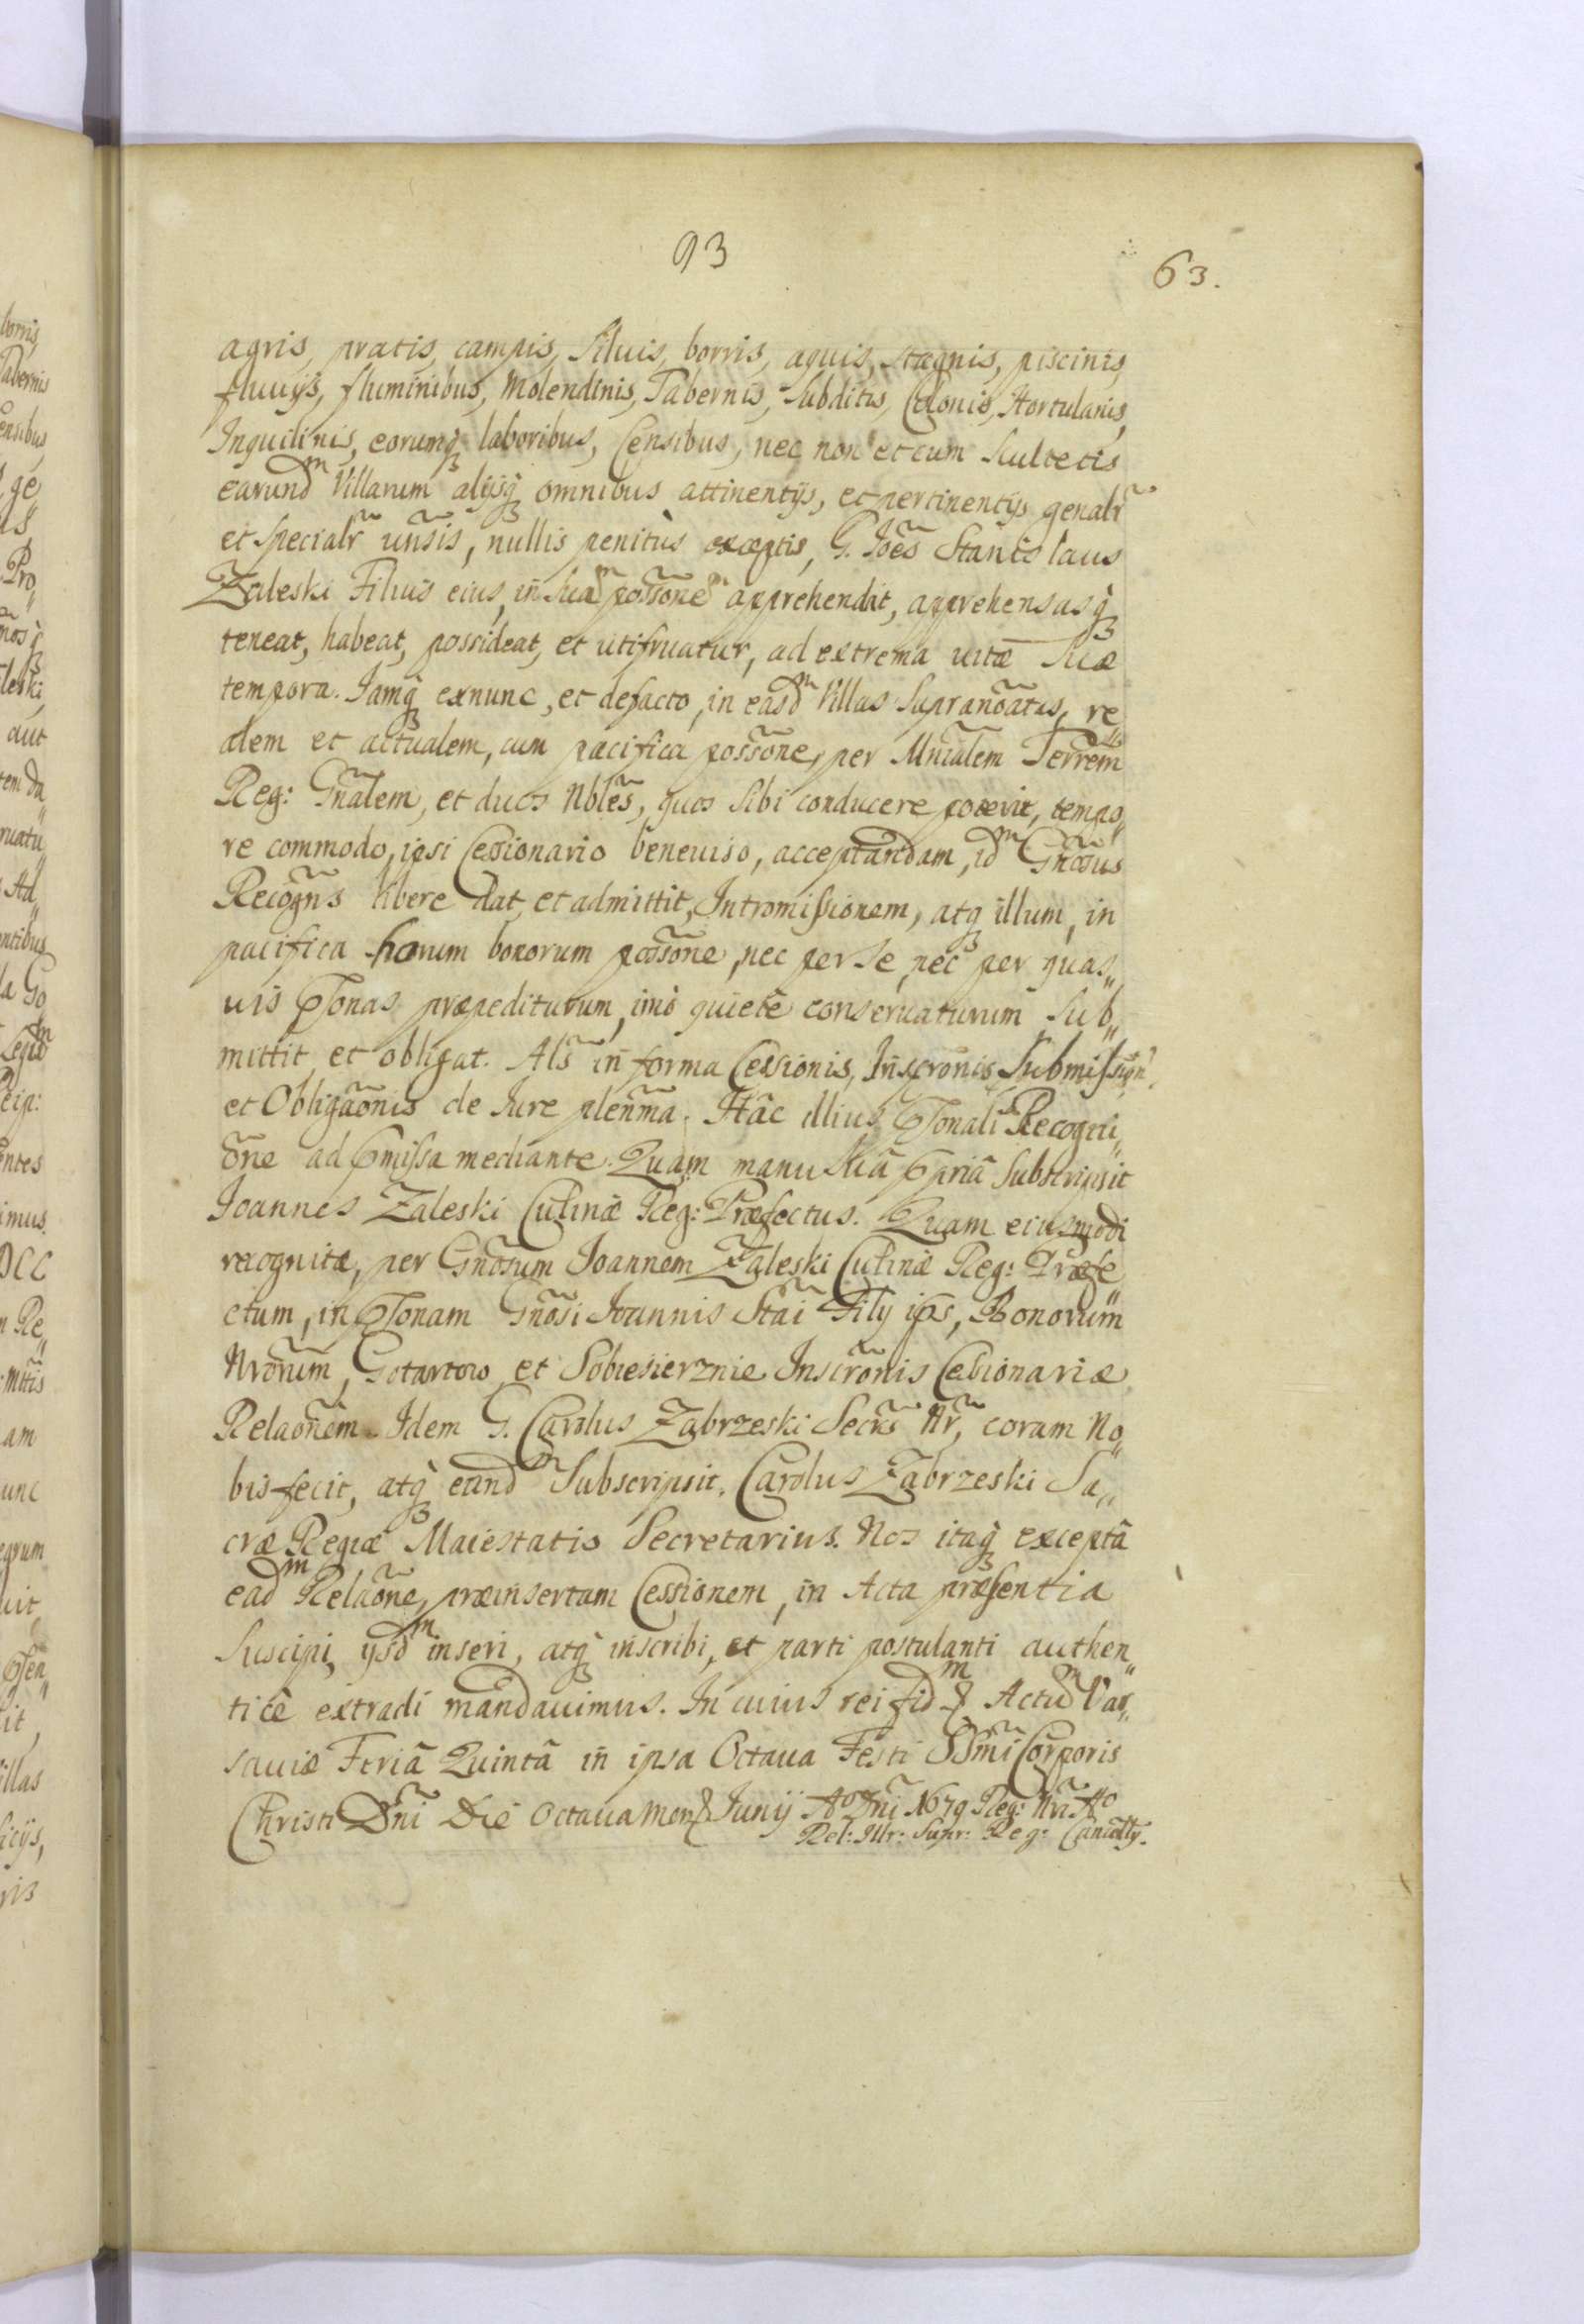 93
63.
agris, pratis, campis, Siluis, borris, aquis, stagnis, piscinis,
fluuijs, fluminibus, Molendinis, Tabernis, Subditis, Colonis, Hortulanis,
Inquilinis, eorumq₃ laboribus, Censibus, nec non et cum Scultetis
earundᵐ Villarum alijsq₃ omnibus attinentijs, et pertinentijs genalr̃
et specialr̃ uñsis, nullis penitùs exceptis, G. Joẽs Stanislaus
Zaleski Filius eius, in suã possõne apprehendat, apprehensasq₃
teneat, habeat, possideat, et utifruatur, ad extrema uitæ suæ
tempora. Iamq₃ exnunc, et defacto, in easdᵐ Villas Supranõatas, re
alem et actualem, cum pacifica possõne, per Mnĩalem Terrem̃
Reg: Gñalem, et duos Nblẽs, quos sibi conducere poterit, tempo„
re commodo, ipsi Cessionario beneuiso, acceptandam, idᵐ Gnõsus
Recogñs libere dat, et admittit, Intromissionem, atq₃ illum, in
pacifica horum bonorum possõne, nec per se, nec per quas„
uis Psonas præpediturum, imò quietè conseruaturum sub„
mittit et obligat. Als̃ in forma Cessionis, Inscrõnis, Submission:
et Obligaõnis de Iure pleñma. Hâc illius Psonali Recogni„
õne ad Pmissa mediante. Quam manu suâ Ppriâ Subscripsit
Joannes Zaleski Culinæ Reg: Præfectus. Quam eiusmodi
recognitæ, per Gnõsum Joannem Zaleski Culinæ Reg: Præfe„
ctum, in Psonam Gnõsi Joannis Stãi Filij ips, Bonorum
Nrõrum, Gotartow et Sobiesierznie Inscrõnis Cessionariæ
Relaõnem. Idem G. Carolus Zabrzeski Secr̃s Nr̃, coram No„
bis fecit, atq₃ eandᵐ Subscripsit. Carolus Zabrzeski Sa„
cræ Regiæ Maiestatis Secretarius. Nos itaq₃ exceptâ
eadᵐ Relaõne, præinsertam Cessionem, in Acta præsentia
suscipi, ijsdᵐ inseri, atq₃ inscribi, et parti postulanti authen„
ticè extradi mandauimus. In cuius rei fidᵐ & Actuᵐ Var„
sauiæ Feriâ Quintâ in ipsa Octaua Festi SSmĩ Corporis
Christi Dñi Die Octaua Mens Junij Aᵒ Dñi 1679 Reg: Nri Aᵒ
Rel: Illr: Supr: Reg: Cancellrij.